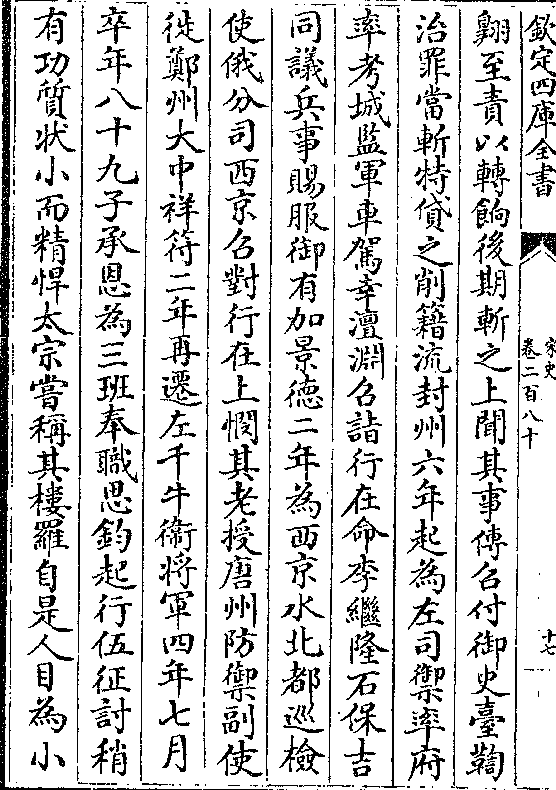 欽定四庫全書
宋史
卷二百八十
十七
翺至責以轉餉後期斬之上聞其事傳召付御史臺鞫
治罪當斬特貸之削籍流封州六年起為左司禦率府
率考城監軍車駕幸澶淵召詣行在命李繼隆石保吉
同議兵事賜服御有加景德二年為西京水北都巡檢
使俄分司西京召對行在上憫其老授唐州防禦副使
徙鄭州大中祥符二年再遷左千牛衞將軍四年七月
卒年八十九子承恩為三班奉職思鈞起行伍征討稍
有功質狀小而精悍太宗嘗稱其樓羅自是人目為小